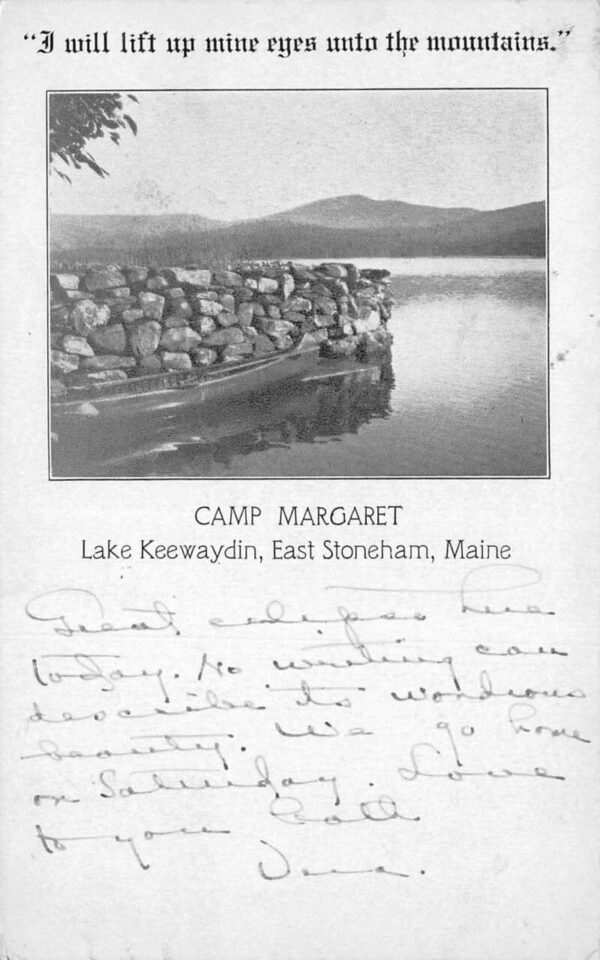 “I will lift up mine eyes unto the mountains.”
CAMP MARGARET
Lake Keewaydin, East Stoneham, Maine
Great eclipse here
today. No writing can
describe its wondrous
beauty. We go home
on Saturday. Love
to you both